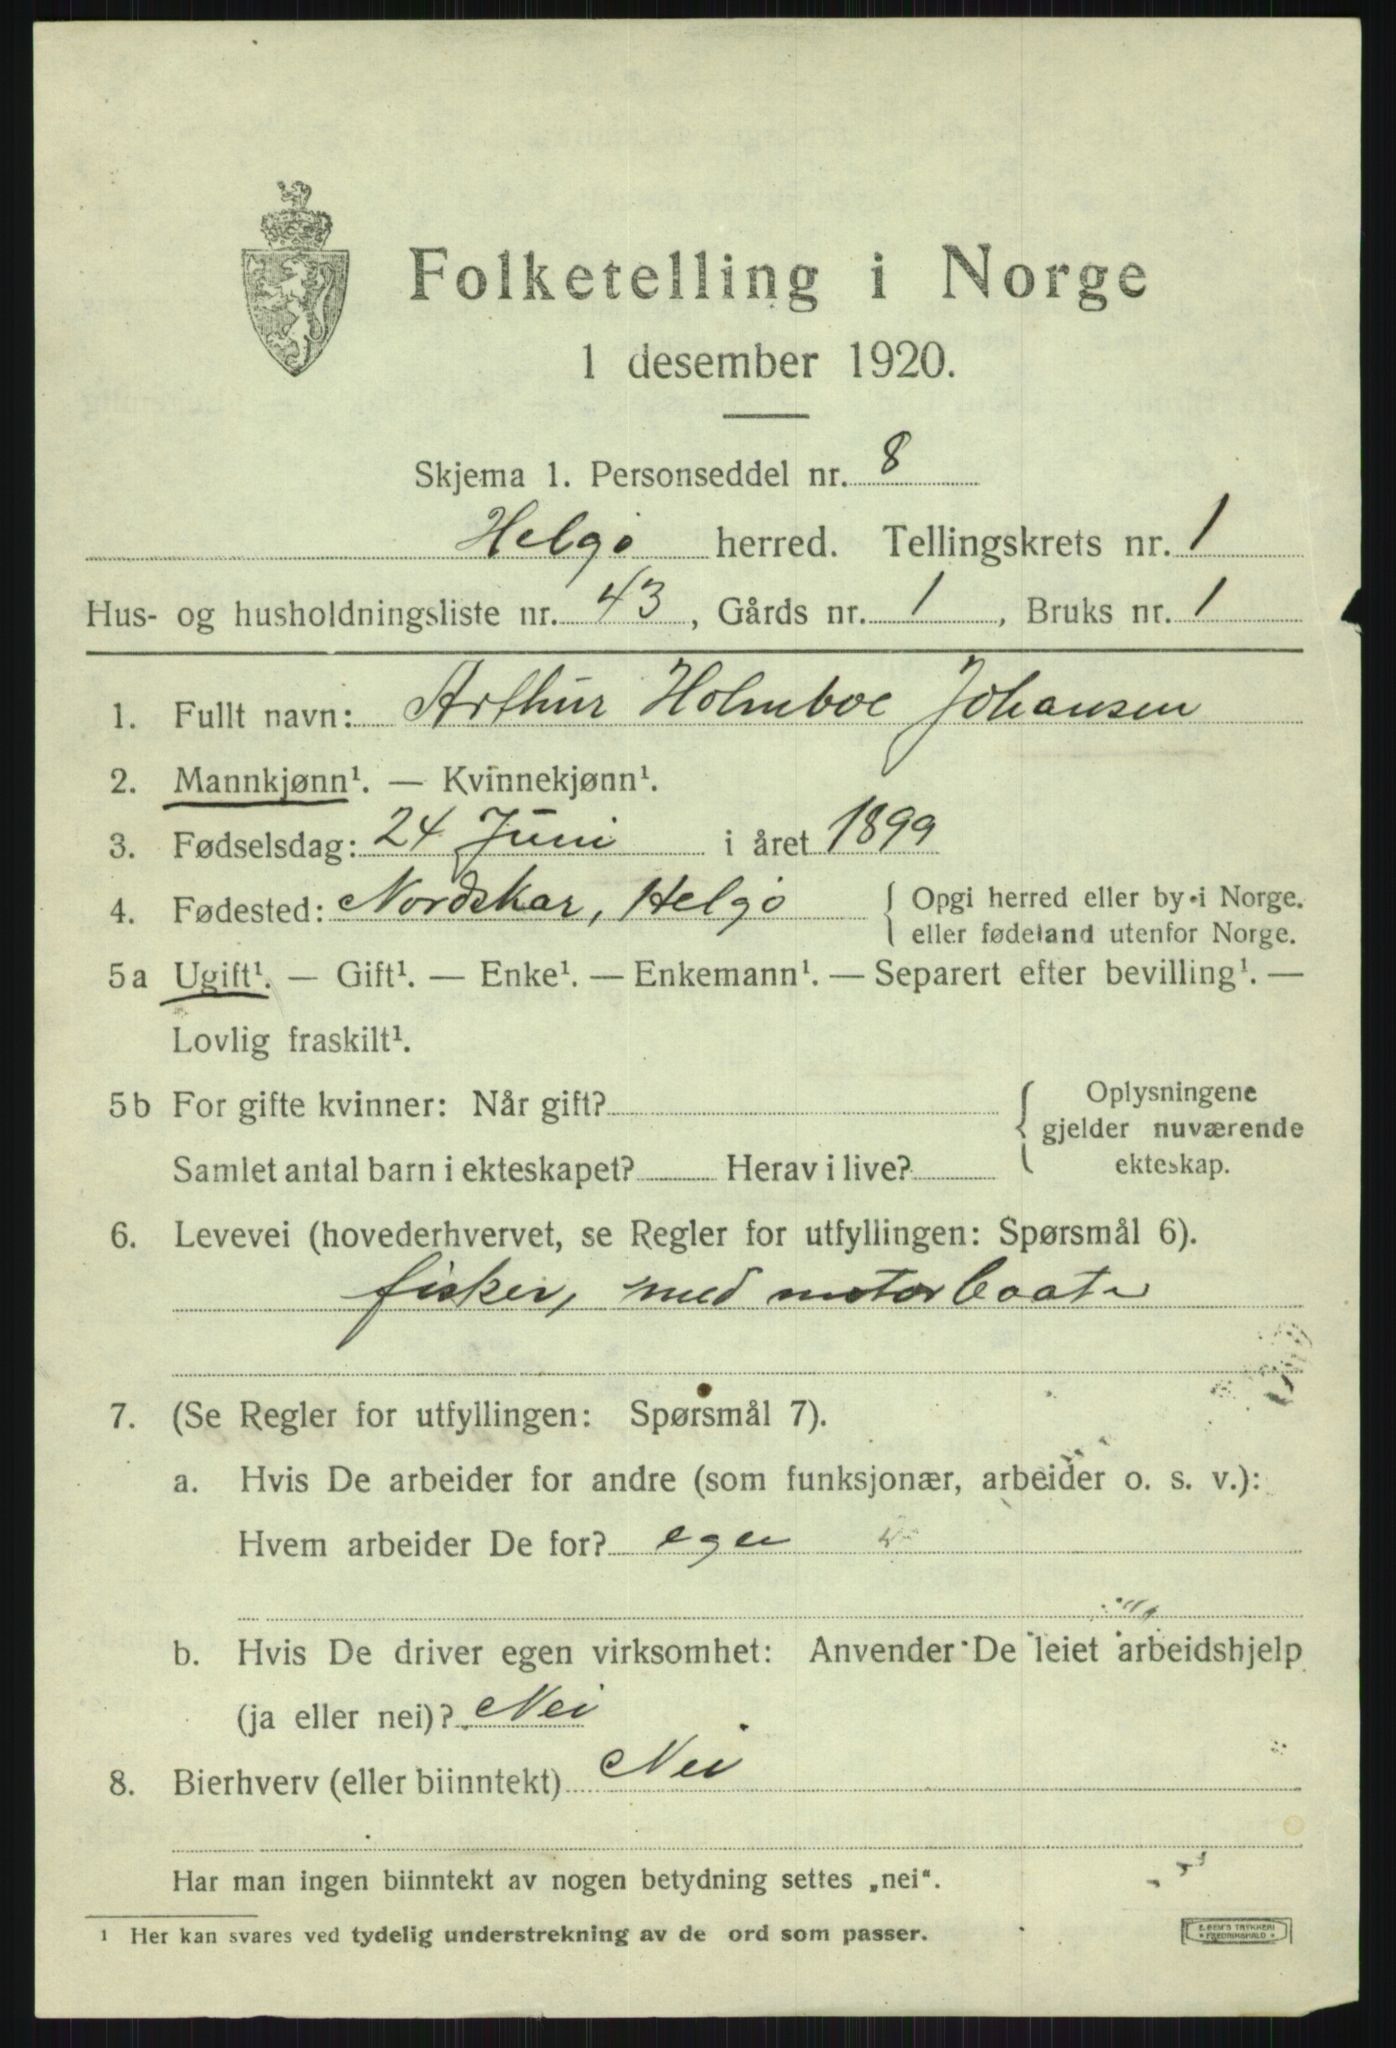 Folketelling i Norge
1 desember 1920.
Skjema 1. Personseddel nr. 8
Helgö herred. Tellingskrets nr. 1
Hus- og husholdningsliste nr. 43, Gårds nr. 1, Bruks nr. 1
1. Fullt navn: Arthur Holmboe Johansen
2. Mannkjønn¹. — Kvinnekjønn¹.
3. Fødselsdag: 24 Juni i året 1899
4. Fødested: Nordskar, Helgö { Opgi herred eller by i Norge.
eller fødeland utenfor Norge.
5a Ugift¹. — Gift¹. — Enke¹. — Enkemann¹. — Separert efter bevilling¹. —
Lovlig fraskilt¹.
5b For gifte kvinner: Når gift? { Oplysningene
gjelder nuværende
Samlet antal barn i ekteskapet? Herav i live? ekteskap.
6. Levevei (hovederhvervet, se Regler for utfyllingen: Spørsmål 6).
fisker, med motorbaat
7. (Se Regler for utfyllingen: Spørsmål 7).
a. Hvis De arbeider for andre (som funksjonær, arbeider o. s. v.):
Hvem arbeider De for? egen
b. Hvis De driver egen virksomhet: Anvender De leiet arbeidshjelp
(ja eller nei)? Nei
8. Bierhverv (eller biinntekt) Nei
Har man ingen biinntekt av nogen betydning settes „nei“.
¹ Her kan svares ved tydelig understrekning av de ord som passer.
E. SEM'S TRYKKERI
FREDRIKSHALD